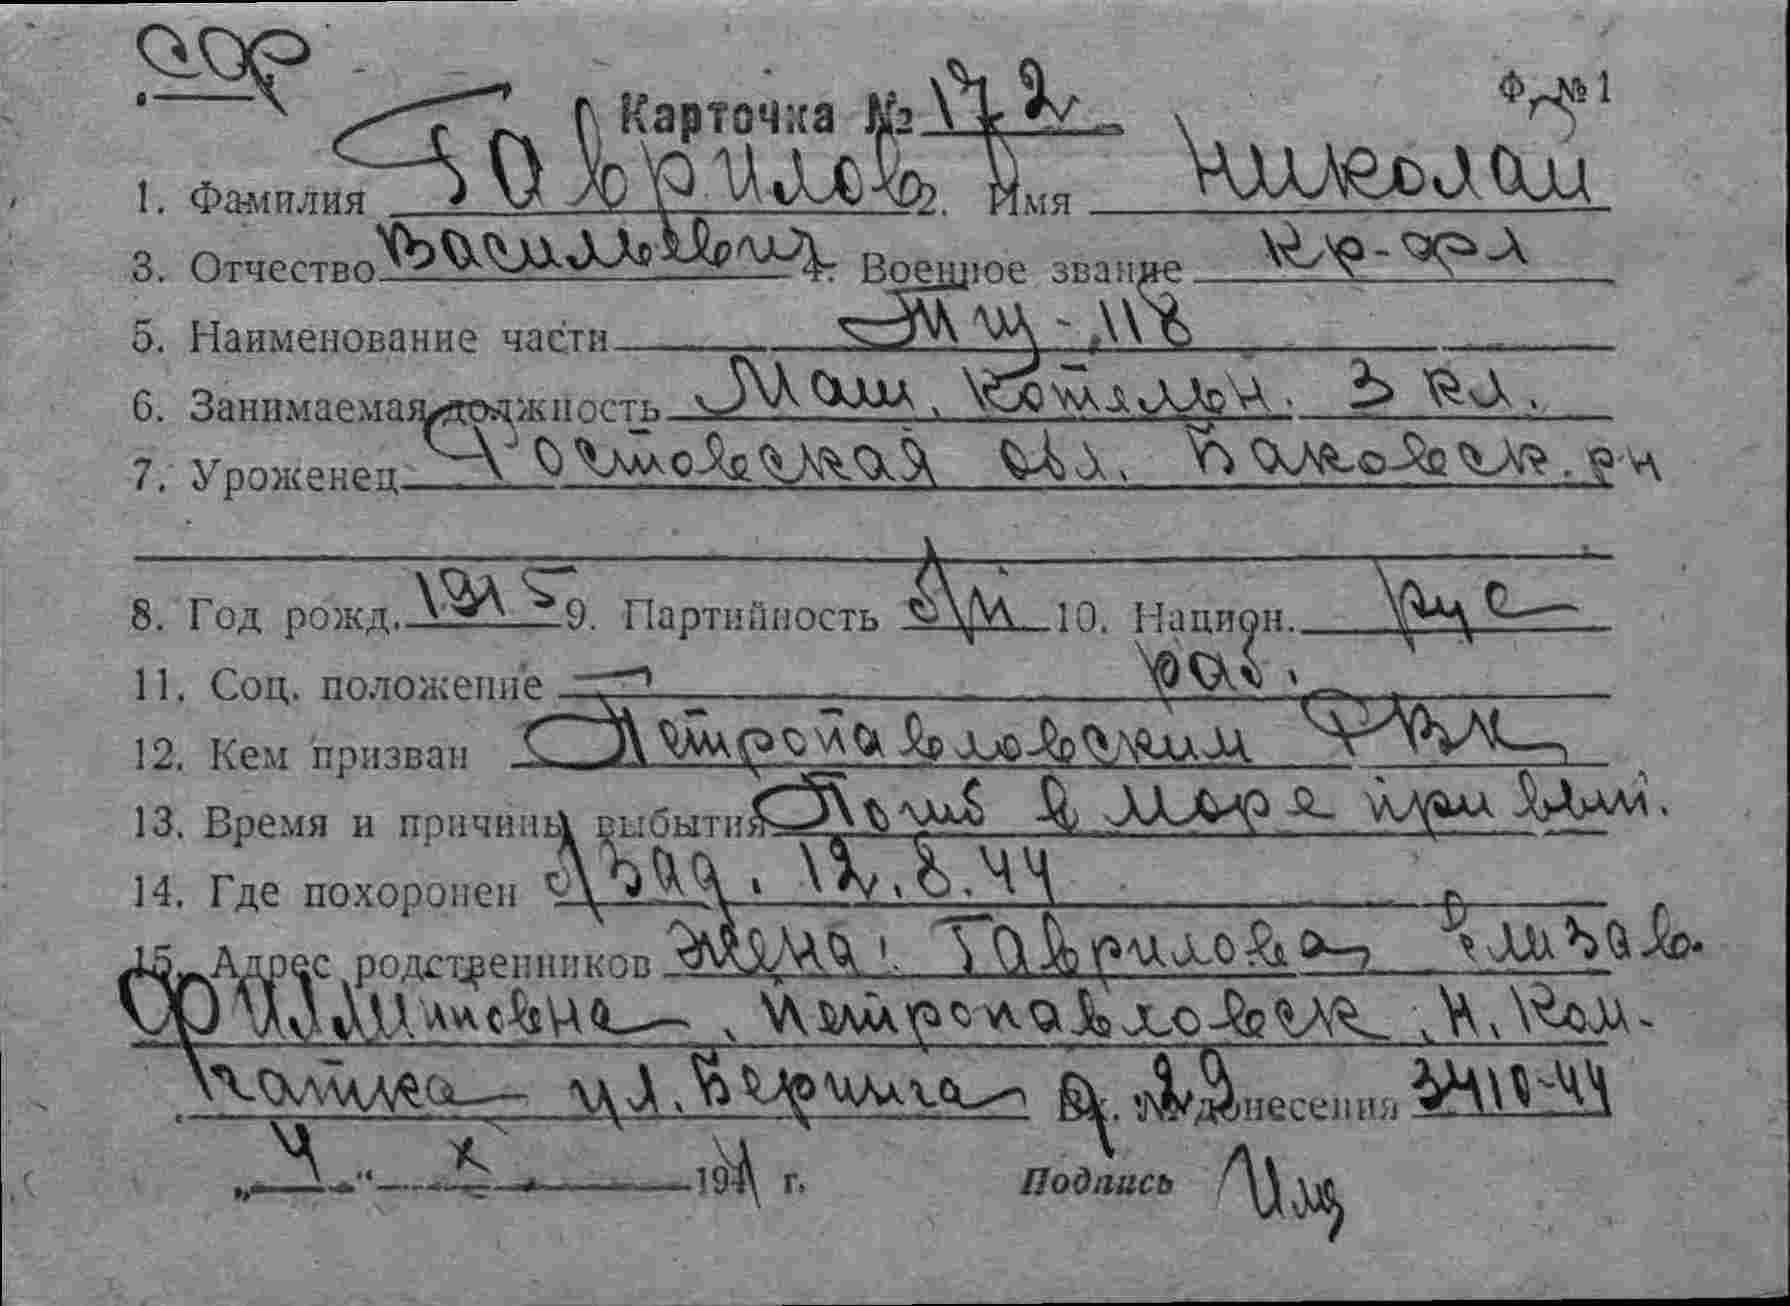 СФ
Карточка № 172 Ф. № 1
1. Фамилия Гаврилов 2. Имя Николай
3. Отчество Васильевич 4. Военное звание кр-фл
5. Наименование части Тщ-118
6. Занимаемая должность Маш. котельн. 3 кл.
7. Уроженец Ростовская обл. Баковск. р-н
8. Год рожд. 1915 9. Партийность б/п 10. Национ. рус
11. Соц. положение раб.
12. Кем призван Петропавловским РВК
13. Время и причины выбытия Погиб в море при вып.
14. Где похоронен б/зад. 12.8.44
15. Адрес родственников жена: Гаврилова Елизав.
Филипповна, Петропавловск, н. Кам-
чатка ул. Беринга д. 29 Вх. № донесения 3410-44
„4" X 1944 г. Подпись